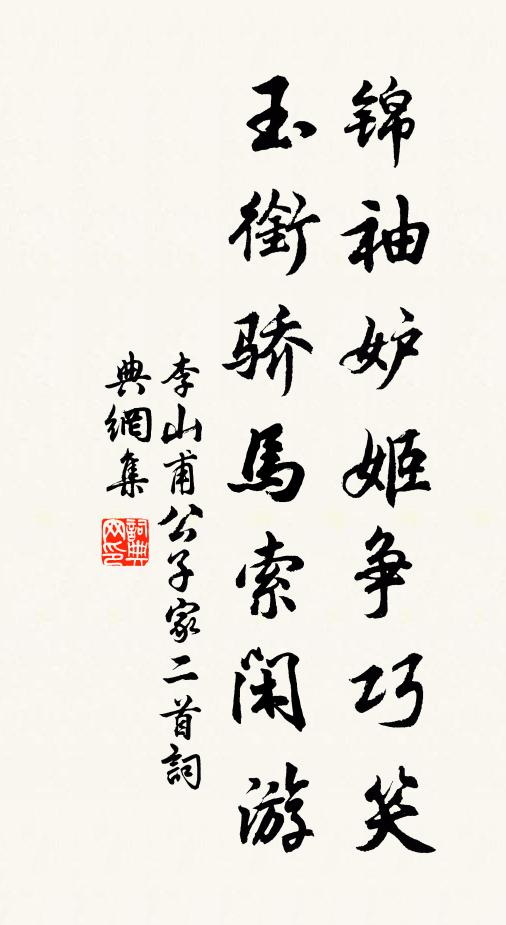 锦袖妒姬争巧笑
玉衔骄馬索闲游
李山甫公子家二首詞
典網集
詞典网印